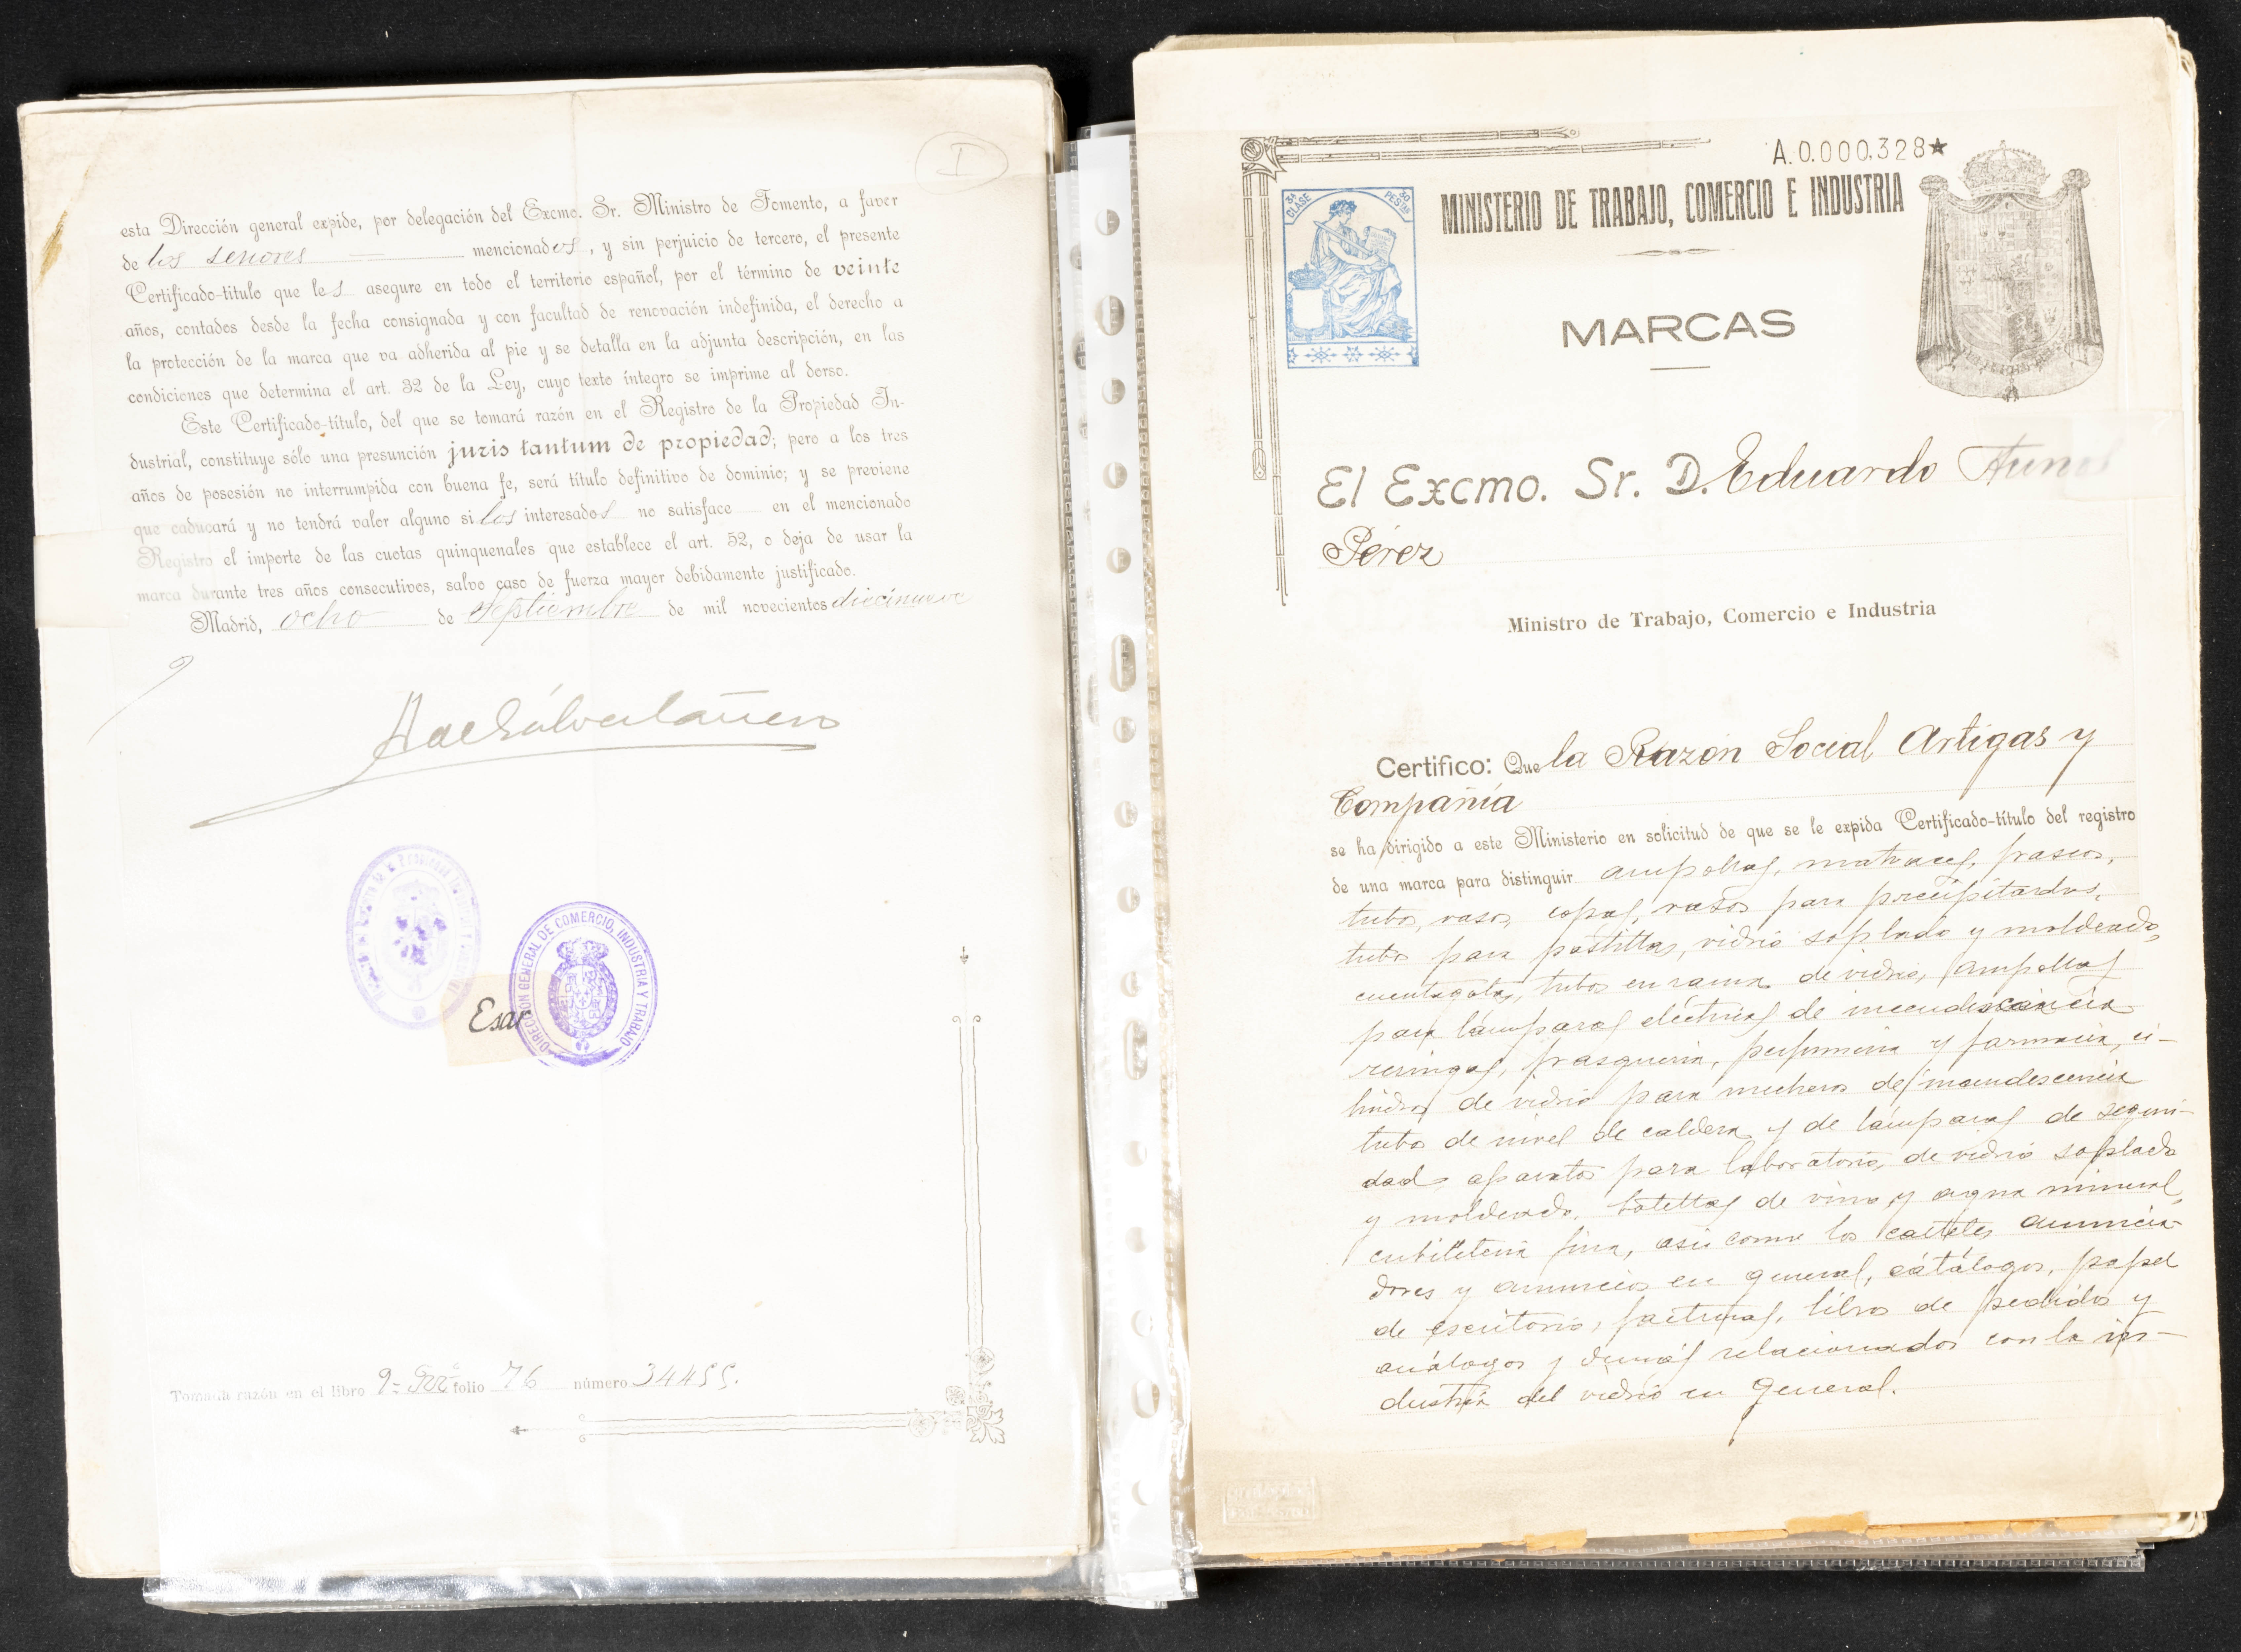 I
esta Dirección general expide, por delegación del Excmo. Sr. Ministro de Fomento, a favor
de los señores mencionados, y sin perjuicio de tercero, el presente
Certificado-título que les asegure en todo el territorio español, por el término de veinte
años, contados desde la fecha consignada y con facultad de renovación indefinida, el derecho a
la protección de la marca que va adherida al pie y se detalla en la adjunta descripción, en las
condiciones que determina el art. 32 de la Ley, cuyo texto íntegro se imprime al dorso.
Este Certificado-título, del que se tomará razón en el Registro de la Propiedad In-
dustrial, constituye sólo una presunción juris tantum de propiedad; pero a los tres
años de posesión no interrumpida con buena fe, será título definitivo de dominio; y se previene
que caducará y no tendrá valor alguno si los interesados no satisface en el mencionado
Registro el importe de las cuotas quinquenales que establece el art. 52, o deja de usar la
marca durante tres años consecutivos, salvo caso de fuerza mayor debidamente justificado.
Madrid, ocho de Septiembre de mil novecientos diecinueve
DIRECCIÓN GENERAL DE COMERCIO, INDUSTRIA Y TRABAJO
Esar
Tomada razón en el libro 9- folio 76 número 34455.
A.0.000.328★
3ª CLASE
30 PESTAS
MINISTERIO DE TRABAJO, COMERCIO E INDUSTRIA
MARCAS
El Excmo. Sr. D. Eduardo Aunos
Pérez
Ministro de Trabajo, Comercio e Industria
Certifico: Que la Razón Social Artigas y
Compañía
se ha dirigido a este Ministerio en solicitud de que se le expida Certificado-título del registro
de una marca para distinguir ampollas, matraces, frascos,
tubos, vasos, copas, vasos para precipitados,
tubos para pastillas, vidrio soplado y moldeado,
cuentagotas, tubos en rama de vidrio, ampollas
para lámparas eléctricas de incandescencia
jeringas, frasqueria, perfumeria y farmacia, ci-
lindros de vidrio para mecheros de incandescencia
tubos de nivel de caldera y de lámparas de seguri-
dad, aparatos para laboratorio, de vidrio soplado
y moldeado, botellas de vino y agua mineral,
cubiletería fina, asi como los carteles anuncia-
dores y anuncios en general, catálogos, papel
de escritorio, facturas, libros de pedidos y
análogos y demás relacionados con la in-
dustria del vidrio en general.